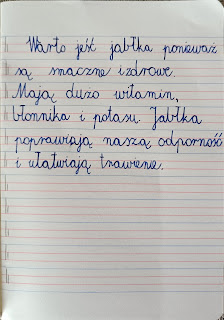 Warto jeść jabłka ponieważ
są smaczne i zdrowe.
Mają dużo witamin,
błonnika i potasu. Jabłka
poprawiają naszą odporność
i ułatwiają trawienie.